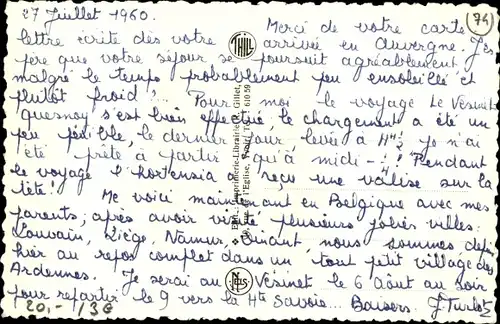 27 Juillet 1960. Merci de votre carte (74)
lettre écrite dès votre arrivée en Auvergne. J'es
père que votre séjour se poursuit agréablement
malgré le temps probablement peu ensoleillé et
plutôt froid? Pour moi le voyage Le Vésinet
Quesnoy s'est bien effectué, le chargement a été un
peu pénible, le dernier jour, levée à 4h! Je n'ai
été prête à partir qu'à midi - ! Pendant
le voyage l'hortensia a reçu une valise sur la
tête! Me voici maintenant en Belgique avec mes
parents, après avoir visité plusieurs jolies villes:
Louvain, Liège, Namur, Dinant, nous sommes depuis
hier au repos complet dans un tout petit village des
Ardennes. Je serai au Vésinet le 6 Août au soir
pour repartir le 9 vers la Hte Savoie. Baisers
20,- /3€
THILL
Nels